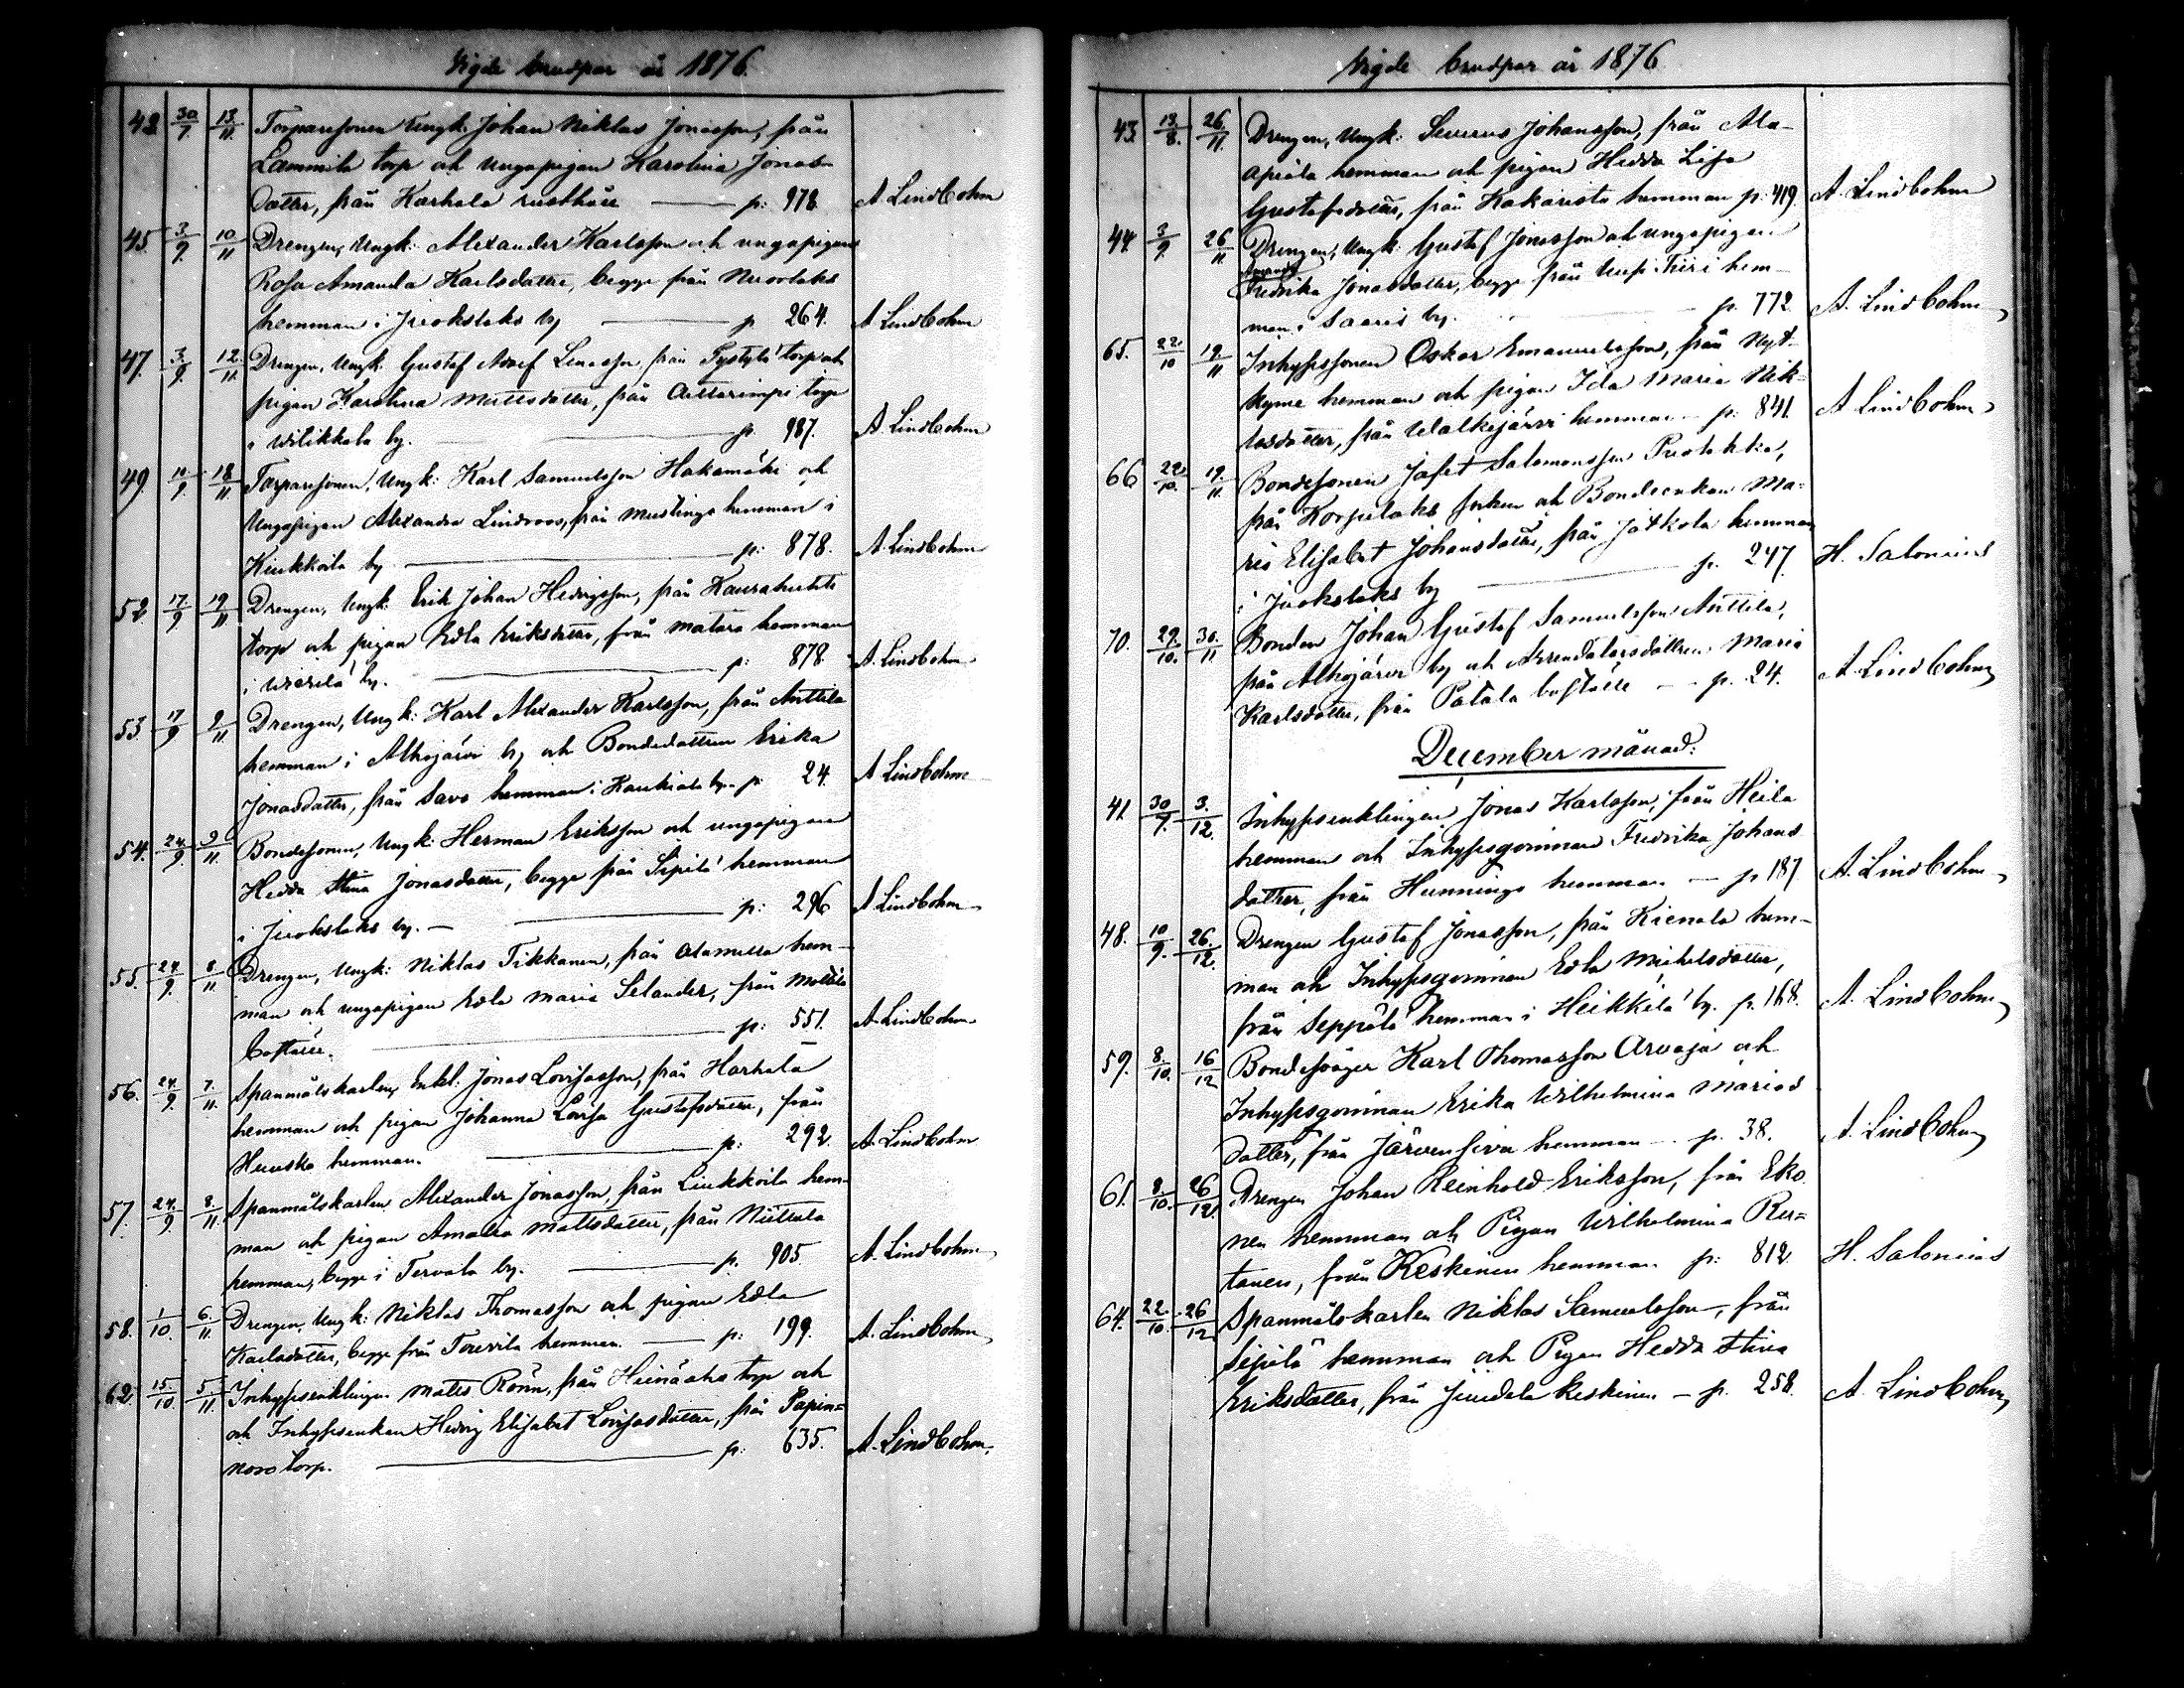 Vigde brudpar år 1876.
42 30/7 13/11. Torparesonen Ungk: Johan Niklas Jonasson, från
Lammila torp och ungapigan Karolina Jonas-
dotter, från Karhala rusthåll — p: 978 A Lindbohm
45 3/9 10/11 Drengen, Ungk: Alexander Karlsson och ungapigan
Rosa Amanda Karlsdotter, begge från
hemman i Juokslaks by — p 264. A Lindbohm
47. 3/9. 12/11. Drengen, Ungk. Gustaf Adolf från torp och
pigan Karolina Mattsdotter, från torp
i Wilikkala by. — p 987. A. Lindbohm
49. 10/9. 18/11 Torparesonen, Ungk: Karl Samuelsson Hakamäki och
Ungapigan Alexandra Lindroos, från Mustinge hemman i
Kiukkoila by — p: 878. A. Lindbohm
52 17/9 19/11 Drengen, Ungk: Erik Johan Hedvigsson, från Kaurahuhta
torp och pigan Edla Eriksdotter, från Matara hemman
i by. — p: 878. A. Lindbohm
53. 17/9 9/11 Drengen, Ungk: Karl Alexander Karlsson, från Anttila
hemman i Alhojärvi by och Bondedottren Erika
Jonasdotter, från Savo hemman i by. p 24. A Lindbohm
54. 24/9 9/11. Bondesonen, Ungk: Herman Eriksson och ungapigan
Hedda Stina Jonasdotter, begge från Sipilä hemman
i Juokslaks by. — p: 296 A Lindbohm
55. 24/9. 8/11 Drengen, Ungk: Niklas Tikkanen, från Alamella hem-
man och ungapigan Edla Maria Selander, från Mattila
boställe. — p: 551. A. Lindbohm
56. 24/9. 7/11. Spanmålskarlen, Enkl: Jonas Lovisasson, från Harhala
hemman och pigan Johanna Lovisa Gustafsdotter, från
hemman. — p: 292. A. Lindbohm
57. 24/9 8/11. Spanmålskarlen Alexander Jonasson, från Liukkoila hem-
man och pigan Amalia Mattsdotter, från Niittula
hemman, begge i Tervala by. — p. 905. A. Lindbohm
58. 1/10. 6/11 Drengen, Ungk: Niklas Thomasson och pigan Edla
Karlsdotter, begge från hemman — p: 199. A. Lindbohm
62. 15/10 5/11. Inhyssenklingen Matts Rönn, från torp och
och Inhyssenkan Hedvig Elisabet Lovisasdotter, från Papin-
noro torp. — p: 635. A. Lindbohm.
Vigde brudpar år 1876
43 13/8. 26/11. Drengen, Ungk: Severus Johansson, från Ala-
hemman och pigan Hedda Lisa
Gustafsdotter, från Kakaristo hemman p: 419. A. Lindbohm
44. 3/9. 26/11. Drengen, Ungk: Gustaf Jonasson och ungapigan
Amanda
Fredrika Jonasdotter, begge från hem-
man i Saaris by. — p. 772. A. Lindbohm
65. 22/10 19/11 Inhyssonen Oskar Emanuelsson, från
hemman och pigan Ida Maria Nik-
lasdotter, från Walkejärvi hemman — p: 841. A Lindbohm
66 22/10. 19/11. Bondesonen Jafet Salomonsson
från Korpilaks och Bondeenkan Ma-
ria Elisabet Johansdotter, från Jutkola hemman
i Juokslaks by — p. 247 H. Salonius
70. 29/10. 30/11 Bonden Johan Gustaf Samuelsson Anttila,
från Alhojärvi by och Arrendatorsdottren Maria
Karlsdotter, från Patala boställe — p. 24. A Lindbohm
December månad:
41 30/7. 3/12. Inhyssenklingen Jonas Karlsson, från Heila
hemman och Inhysqvinnan Fredrika Johans
dotter, från Hunninge hemman — p 187 A. Lindbohm
48. 10/9. 26/12. Drengen Gustaf Jonasson, från hem-
man och Inhysqvinnan Edla Mickelsdotter,
från Seppälä hemman i Heikkilä by. p. 168. A. Lindbohm
59. 8/10. 16/12 Bondesvåger Karl Thomasson Arvaja och
Inhysqvinnan Erika Wilhelmina Marias
dotter, från hemman — p. 38. A. Lindbohm
61. 8/10. 26/12. Drengen Johan Reinhold Eriksson, från Eko
nen hemman och Pigan Wilhelmina
tanen, från Keskinen hemman p: 812 H. Salonius
64. 22/10. 26/12 Spanmålskarlen Niklas Samuelsson, från
Sipilä hemman och Pigan Hedda Stina
Eriksdotter, från Keskinen — p. 258. A. Lindbohm